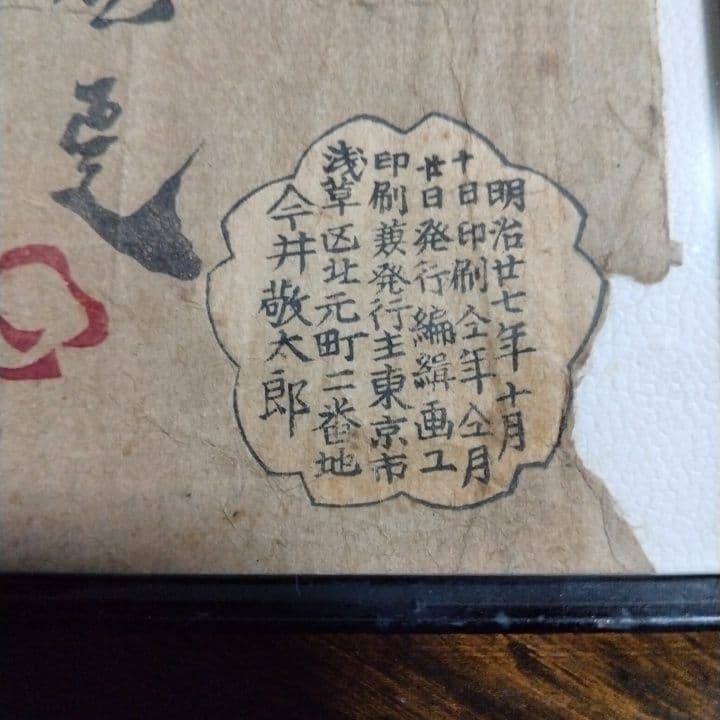 明治廿七年十月
十日印刷仝年仝月
廿日発行編緝画工
印刷兼発行主東京市
浅草区北元町二番地
今井敬太郎